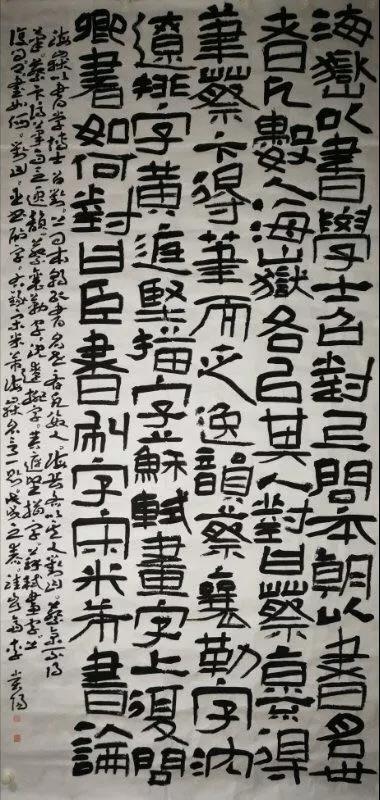 海嶽以書學士召對上問本朝以書名世
者凡數人海嶽各以其人對曰蔡京得
筆蔡卞得筆而乏逸韻蔡襄勒字沈
遼排字黃庭堅描字蘇軾畫字上復問
卿書如何對曰臣書刷字宋米芾書論
海嶽以書學博士召對上問本朝以書名世者凡數人海嶽各以其人對曰蔡京不得
筆蔡卞得筆而乏逸韻蔡襄勒字沈遼排字黃庭堅描字蘇軾畫字上
復問卿書如何對曰臣書刷字右錄宋米芾海嶽名言一則戊戌之春